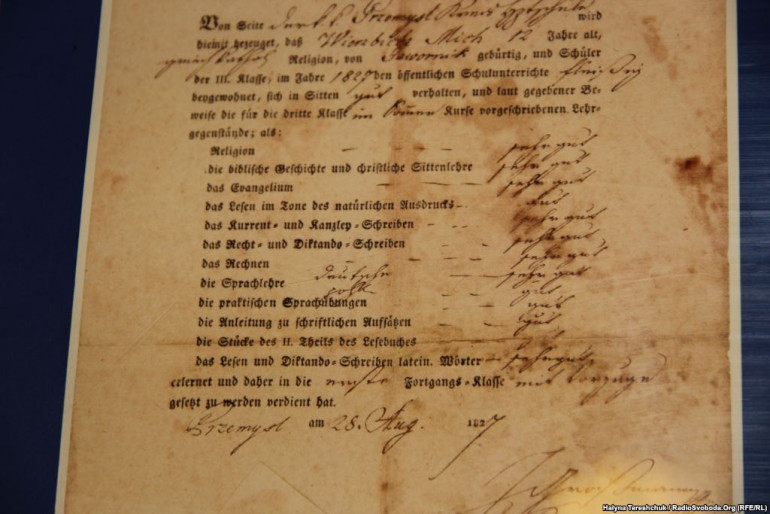 Von Seite der k. k. Przemysl Kreis Hauptschule wird
hiemit bezeuget, daß Wierzbicki Mich 12 Jahre alt,
griech kathol Religion, von Jawornik gebürtig, und Schüler
der III. Klasse, im Jahre 1827 den öffentlichen Schulunterrichte fleißig
beygewohnet, sich in Sitten gut verhalten, und laut gegebener Be-
weise die für die dritte Klasse im Sommer Kurse vorgeschriebenen Lehr-
gegenstände; als:
Religion - - - sehr gut
die biblische Geschichte und christliche Sittenlehre sehr gut
das Evangelium - - - sehr gut
das Lesen im Tone des natürlichen Ausdrucks - gut
das Kurrent- und Kanzley-Schreiben - - sehr gut
das Recht- und Diktando-Schreiben - - sehr gut
das Rechnen - - - sehr gut
die Sprachlehre deutsche - - sehr gut
poln - gut
die praktischen Sprachübungen - - gut
die Anleitung zu schriftlichen Aufsätzen - gut
die Stücke des II. Theils des Lesebuches -
das Lesen und Diktando-Schreiben latein. Wörter - sehr gut
erlernet und daher in die erste Fortgangs-Klasse mit Vorzuge
gesetzt zu werden verdient hat.
Przemysl am 28. Aug. 1827
Halyna Tereshchuk / RadioSvoboda.Org (RFE/RL)